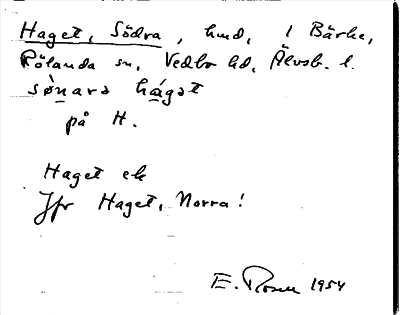 Haget, Södra, hmd, i Bärke,
Rölanda sn, Vedbo hd, Älvsb. l.
sø̀nara hágət
på H.
Haget ek
Jfr Haget, Norra!
E. Rosen 1954